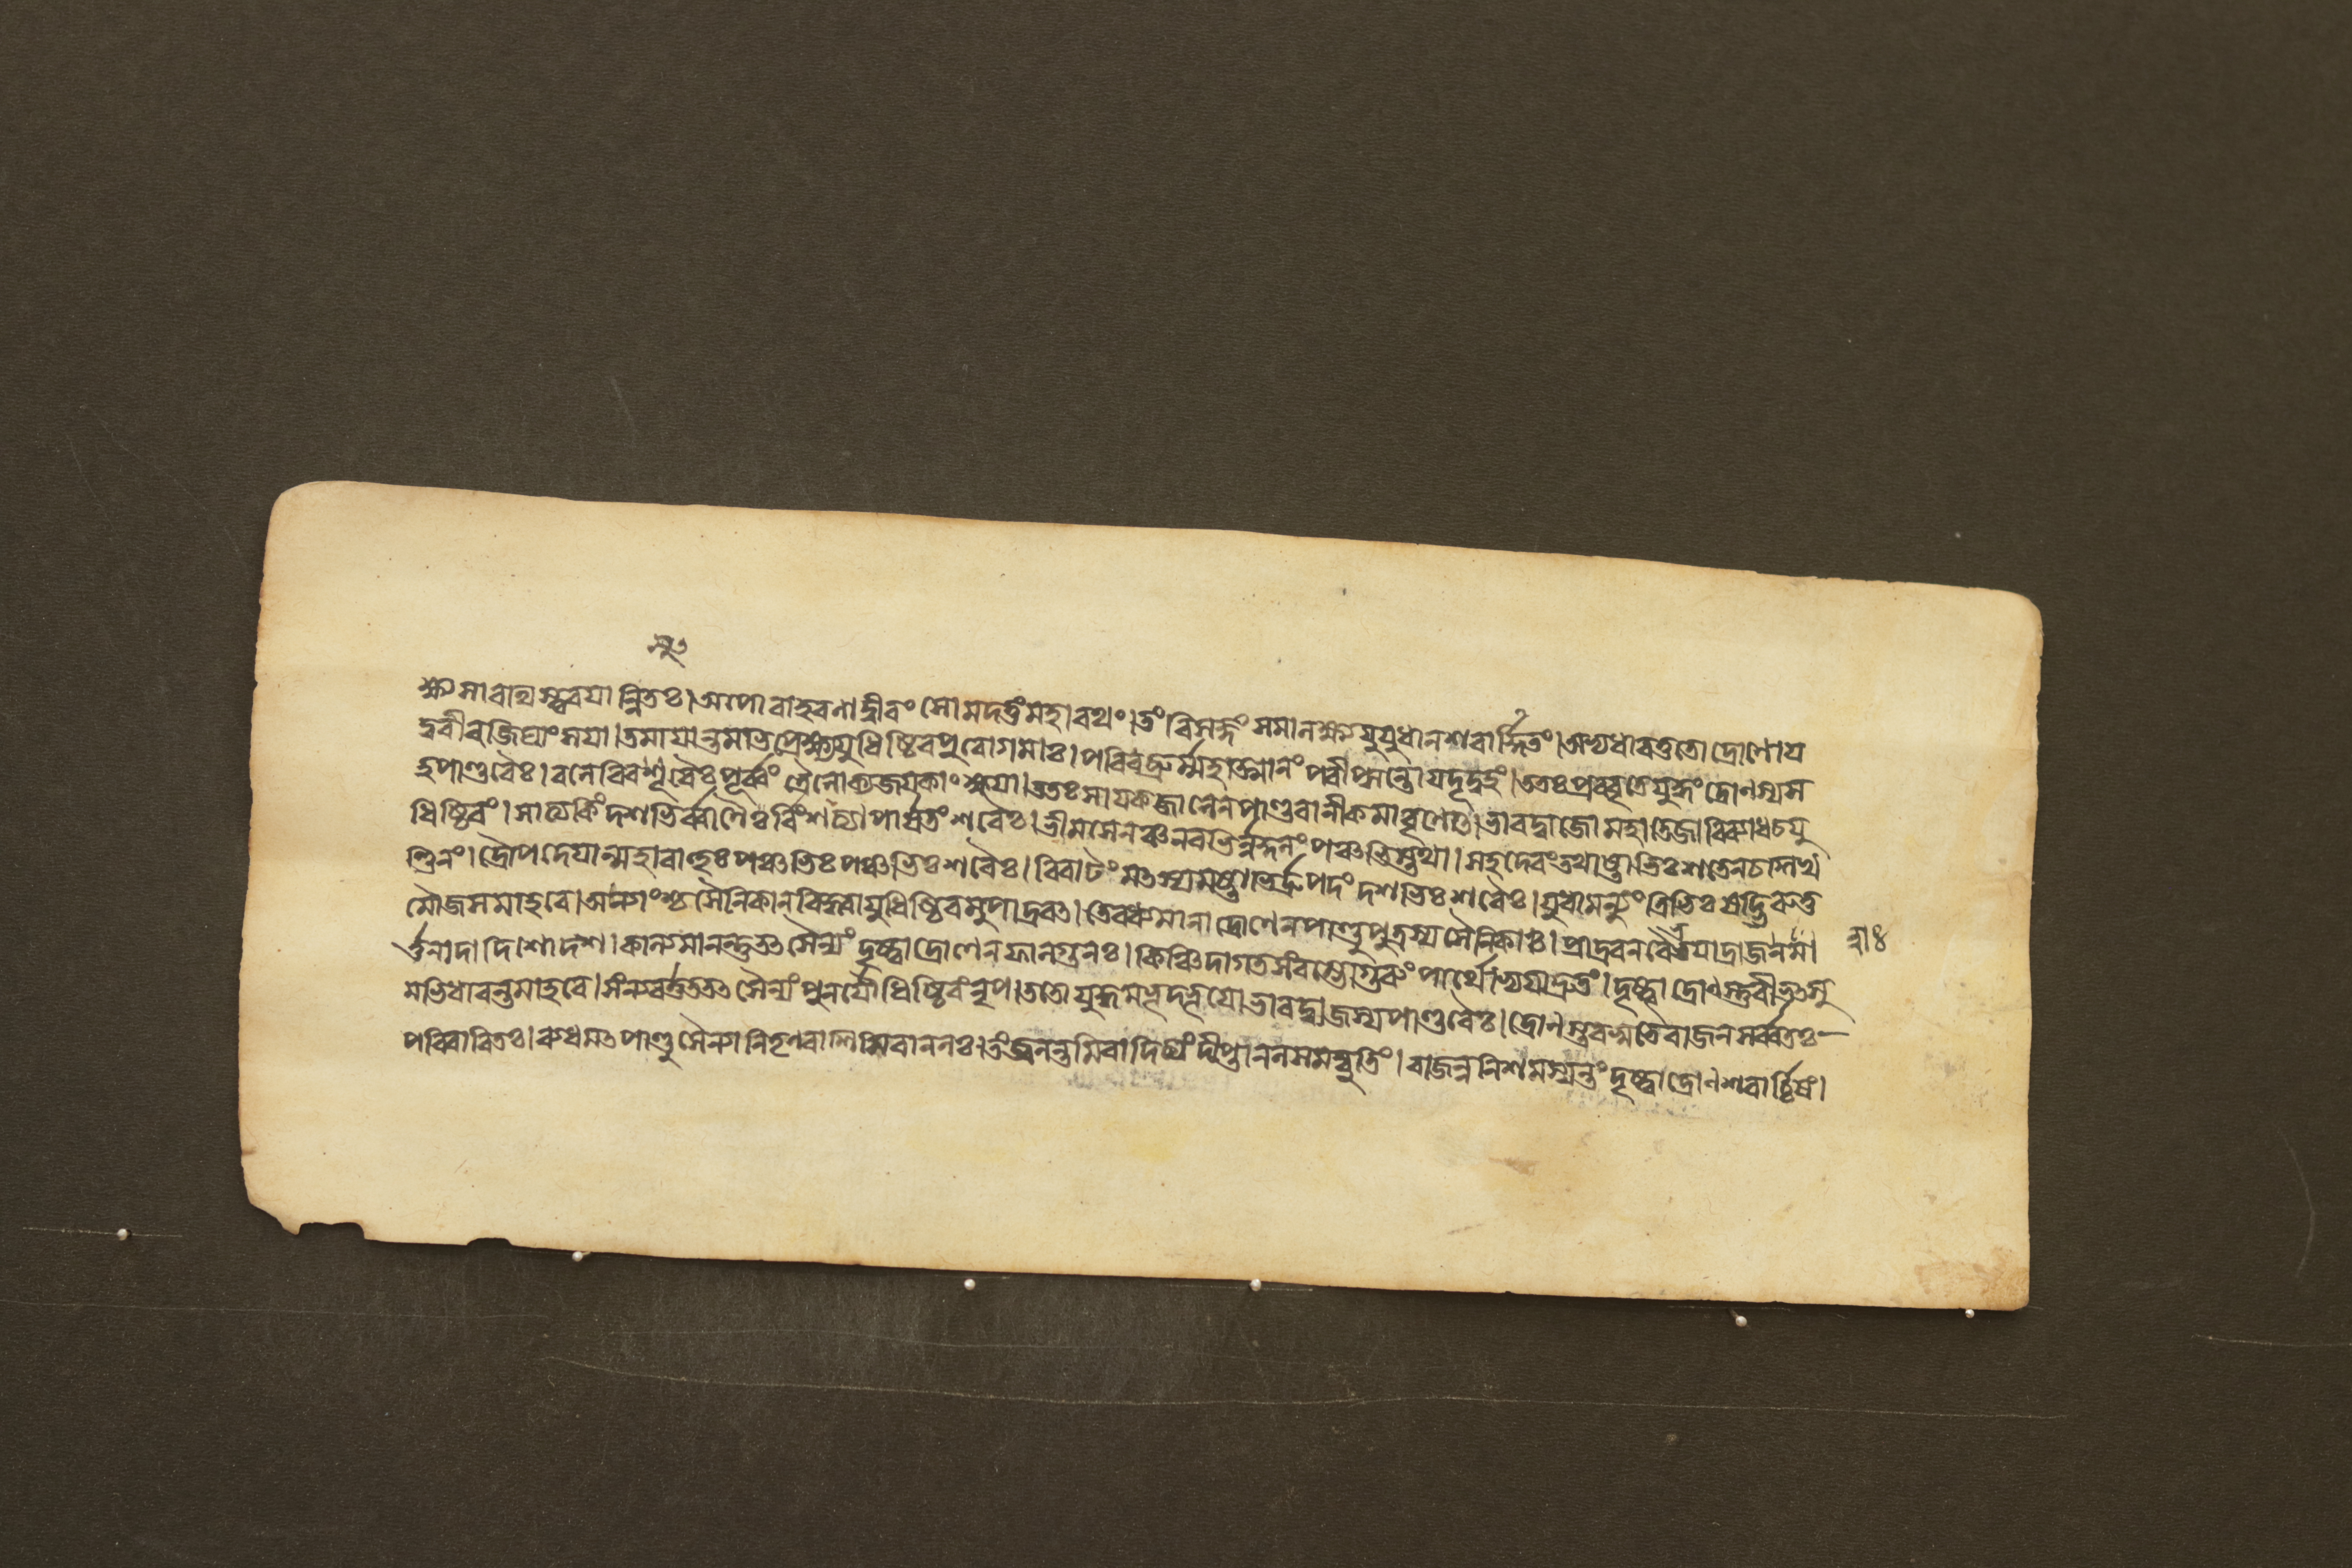 ন্মু৩
ক্ষ্য সারথিস্ত্বরয়ান্বিতঃ। অপোবাহ রণাদ্বীরং সোমদত্তং মহারথং। তং বিসংজ্ঞং সমালক্ষ্য যুযুধানশরার্দ্দিতং। অভ্যধাবত্ততো দ্রোণো য
দুবীরজিঘাংসয়া। তমায়ান্তমভিপ্রেক্ষ্য যুধিষ্ঠিরপুরোগমাঃ। পরিবব্রুর্ম্মহাত্মানং পরীপ্সন্তো যদূদ্বহং। ততঃ প্রববৃতে যুদ্ধং দ্রোণস্য স
হ পাণ্ডবৈঃ। বলেরিব সুরৈঃ পূর্ব্বং ত্রৈলোক্যজয়কাংক্ষয়া। ততঃ সায়কজালেন পাণ্ডবানীকমাবৃণোৎ। ভারদ্বাজো মহাতেজা বিব্যাধ চ যু
ধিষ্ঠিরং। সাত্যকিং দশভির্ব্বাণৈর্বিংশত্যা পার্ষতং শরৈঃ। ভীমসেনঞ্চ নবভির্ন্নকুলং পঞ্চভিস্তথা। সহদেবং তথাষ্টাভিঃ শতেন চ শিখ
ণ্ডিনং। দ্রৌপদেয়ান্মহাবাহুঃ পঞ্চভিঃ পঞ্চভিঃ শরৈঃ। বিরাটং মৎস্যমষ্টাভির্দ্রুপদং দশভিঃ শরৈঃ। যুধামন্যুং ত্রিভিঃ ষড্ভিরুত্ত
মৌজসমাহবে। অন্যাংশ্চ সৈনিকান্ বিদ্ধ্বা যুধিষ্ঠিরমুপাদ্রবৎ। তে বধ্যমানা দ্রোণেন পাণ্ডুপুত্রস্য সৈনিকাঃ। প্রাদ্রবন্ বৈ ভয়াদ্রাজন্ সা
র্ত্তনাদা দিশো দশ। কাল্যমানন্তু তৎ সৈন্যং দৃষ্ট্বা দ্রোণেন ফাল্গুনঃ। কিঞ্চিদাগতসংরম্ভো গুরুং পার্থোভ্যয়াদ্দ্রুতং। দৃষ্ট্বা দ্রোণস্তু বীভৎসু
মভিধাবন্তমাহবে। সংন্যবর্ত্তত তৎ সৈন্যং পুনর্যৌধিষ্ঠিরং নৃপ। ততো যুদ্ধমভূদ্ভূয়ো ভারদ্বাজস্য পাণ্ডবৈঃ। দ্রোণস্তব সুতৈ রাজন্ সর্ব্বতঃ
পরিবারিতঃ। ব্যধমৎ পাণ্ডুসৈন্যানি তূলরাশিমিবানলঃ। তং জ্বলন্তমিবাদিত্যং দীপ্তানলসমদ্যুতিং। রাজন্ননিশমত্যন্তং দৃষ্ট্বা দ্রোণং শরার্চ্চিষং।